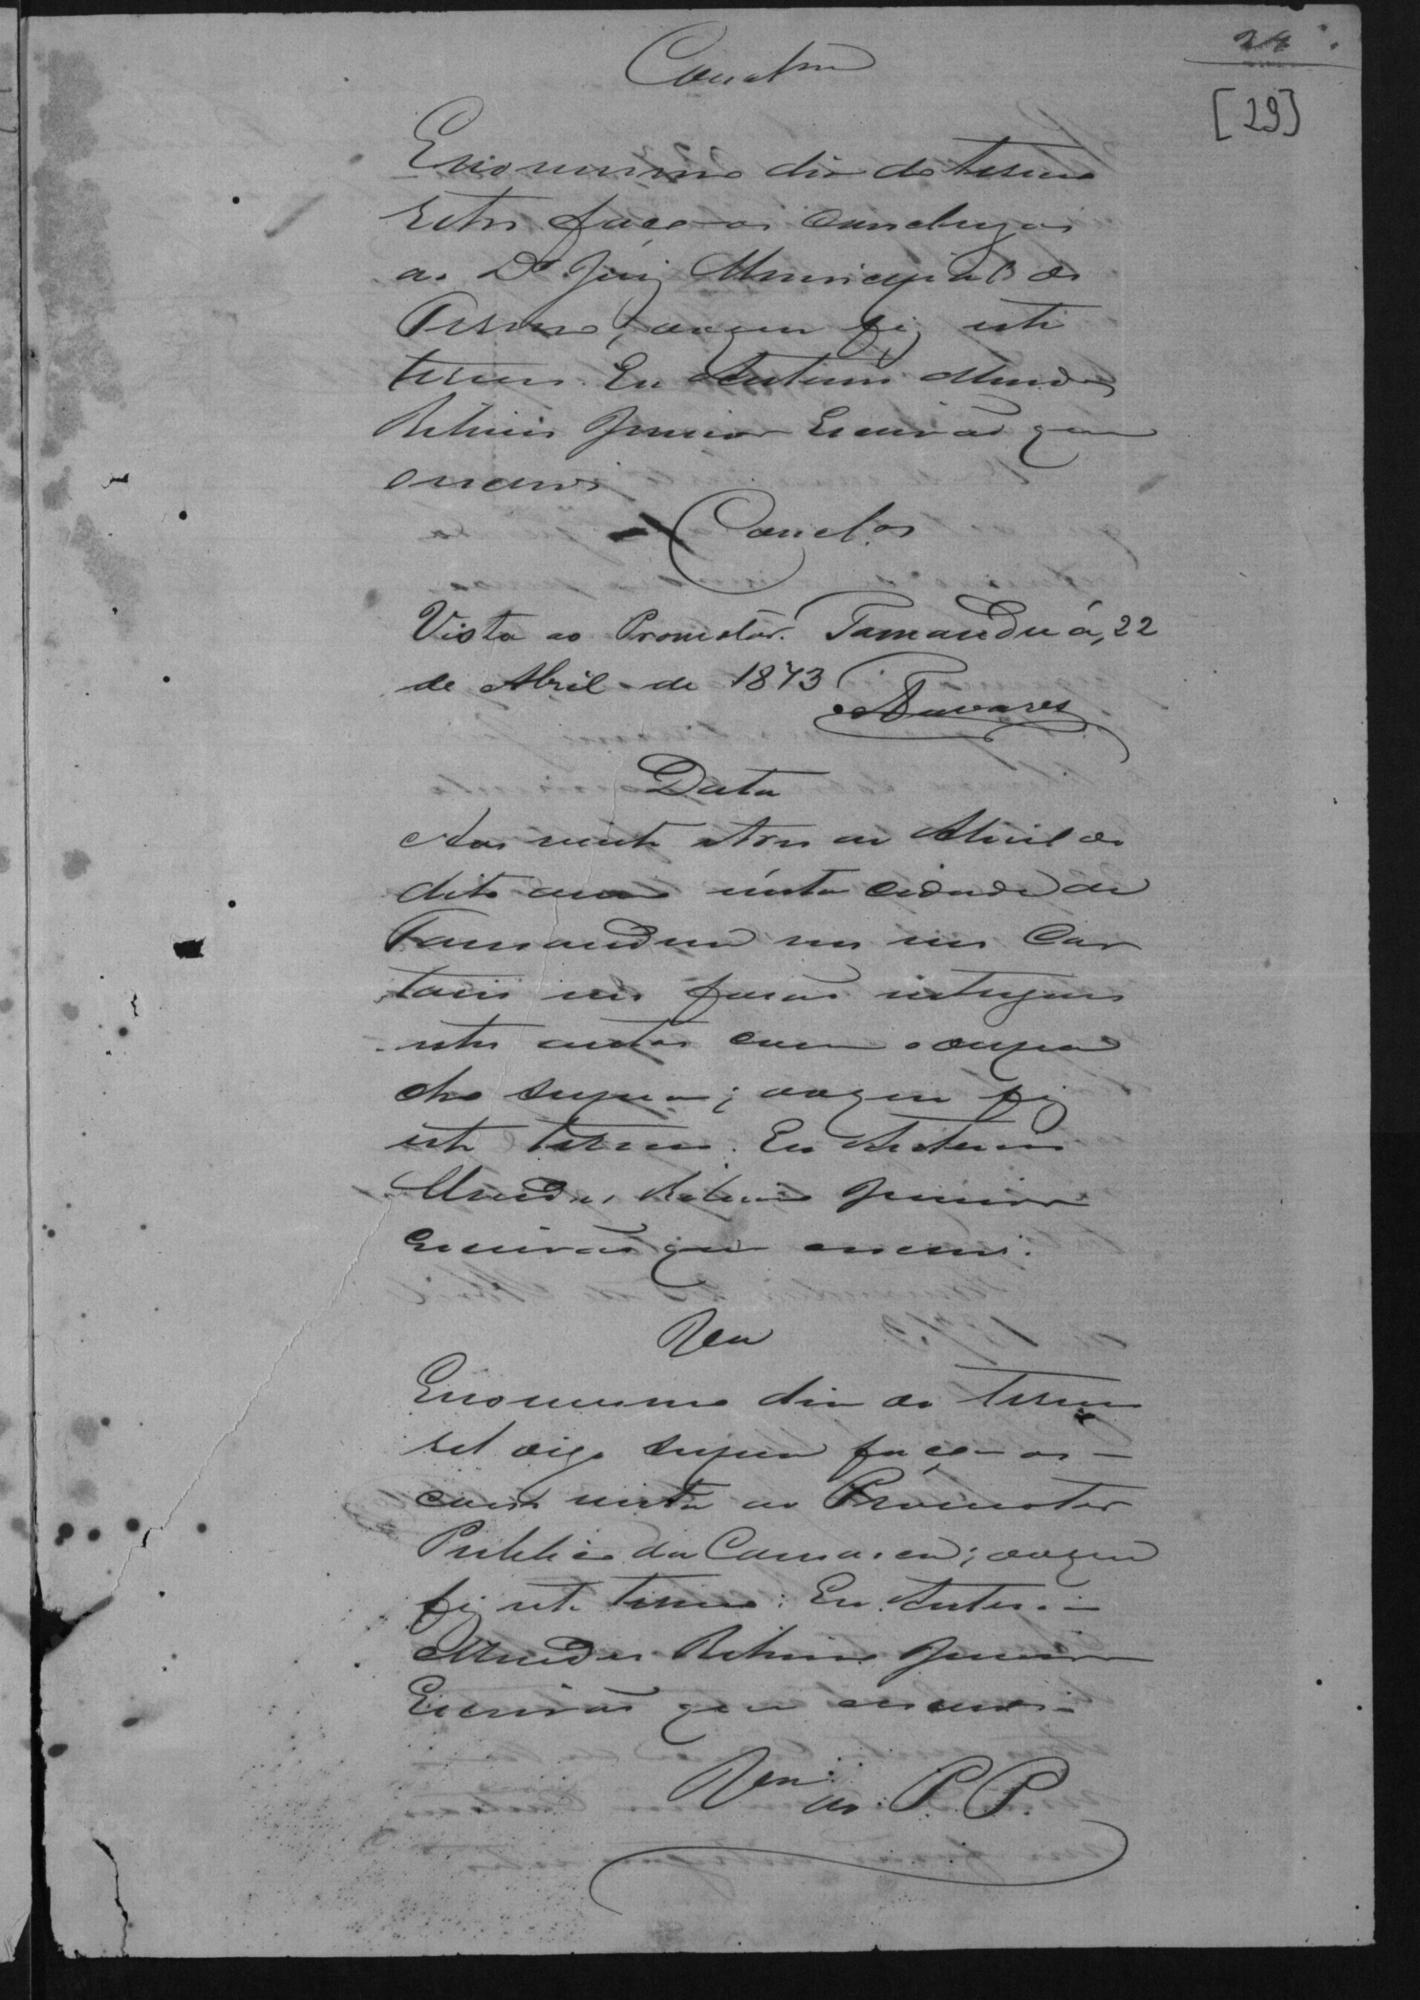 24
[29]
Conclsm
E no mesmo dia do termo
retro faço os conclusos
ao Dr. Juiz Municipal do
Termo, do que fiz este
termo. Eu Antonio Mendes
Ribeiro Junior Escrivão que
escrevi
Concl.os
Vista ao Promotor. Tamanduá, 22
de Abril de 1873
Tavares
Data
Aos vinte e tres de Abril do
dito anno nesta cidade de
Tamandua em meu Car
torio me forão entregues
estes autos com o despa
cho supra; do que fiz
este termo. Eu Antonio
Mendes Ribeiro Junior
Escrivão que escrevi.
E no mesmo dia do termo
ret digo supra faço os
com vista ao Promotor
Publico da Comarca; do que
fiz este termo. Eu Antonio
Mendes Ribeiro Junior
Escrivão que escrevi
ao P. P.